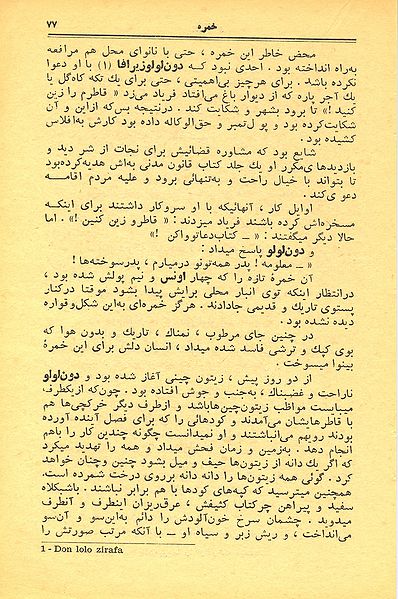 خمره
۷۷
محض خاطر این خمره ، حتی با نانوای محل هم مرافعه
به‌راه انداخته بود . احدی نبود کـه دون‌لولوزیرافا (۱) با او دعوا
نکرده باشد . برای هرچیز بی‌اهمیتی ، حتی برای یك تکه کاه‌گل یا
یك آجر پاره که از دیوار باغ می‌افتاد فریاد می‌زد « قاطرم را زین
کنید !» تا برود بشهر و شکایت کند . درنتیجه بس‌که ازاین و آن
شکایت‌کرده بود و پول‌تمبر و حق‌الوکاله داده بود کارش به‌افلاس
کشیده بود .
شایع بود که مشاوره قضائیش برای نجات از شر دید و
بازدیدهای‌مکرر او یك جلد کتاب قانون مدنی به‌اش هدیه‌کرده‌بود
تا بتواند با خیال راحت و به‌تنهائی برود و علیه مردم اقامـــه
دعوی‌کند .
اوایل کار ، آنهائیکه با او سروکار داشتند برای اینکـه
مسخره‌اش کرده باشند فریاد میزدند : « قاطرو زین کنین !» . اما
حالا دیگر میگفتند : « ــ کتاب‌دعاتوواکن !»
و دون‌لولو پاسخ میداد :
« ــ معلومه ! پدر همه‌تونو درمیارم ، پدرسوخته‌ها !
آن خمرهٔ تازه را که چهار اونس و نیم پولش شده بود ،
درانتظار اینکه توی انبار محلی برایش پیدا بشود موقتا درکنار
پستوی تاریك و قدیمی جادادند . هرگز خمره‌ای به‌این شکل‌وقواره
دیده نشده بود .
در چنین جای مرطوب ، نمناك ، تاریك و بدون هوا که
بوی کپك و ترشی فاسد شده میداد ، انسان دلش برای این خمرهٔ
بینوا میسوخت .
از دو روز پیش ، زیتون چینی آغاز شده بود و دون‌لولو
ناراحت و غضبناك ، به‌جنب و جوش افتاده بود . چون‌که ازیکطرف
میبایست مواظب زیتون‌چین‌هاباشد و ازطرف دیگر خرکچی‌ها هم
با قاطرهایشان می‌آمدند و کودهائی را که برای فصل آینده آورده
بودند رویهم می‌انباشتند و او نمیدانست چگونه چندین کار را باهم
انجام دهد . به‌زمین و زمان فحش میداد و همه را تهدید میکرد
که اگر یك دانه از زیتون‌ها حیف و میل بشود چنین وچنان خواهد
کرد . گوئی همه زیتون‌ها را دانه دانه برروی درخت شمرده است.
همچنین میترسید که کپه‌های کودها با هم برابر نباشند . باشبکلاه
سفید و پیراهن چرکتاب کثیفش ، عرق‌ریزان اینطرف و آنطرف
میدوید . چشمان سرخ خون‌آلودش را دائم به‌این‌سو و آن‌سو
می‌انداخت ، و ریش زبر و سیاه او ــ با آنکه مرتب صورتش را
1 - Don lolo zirafa